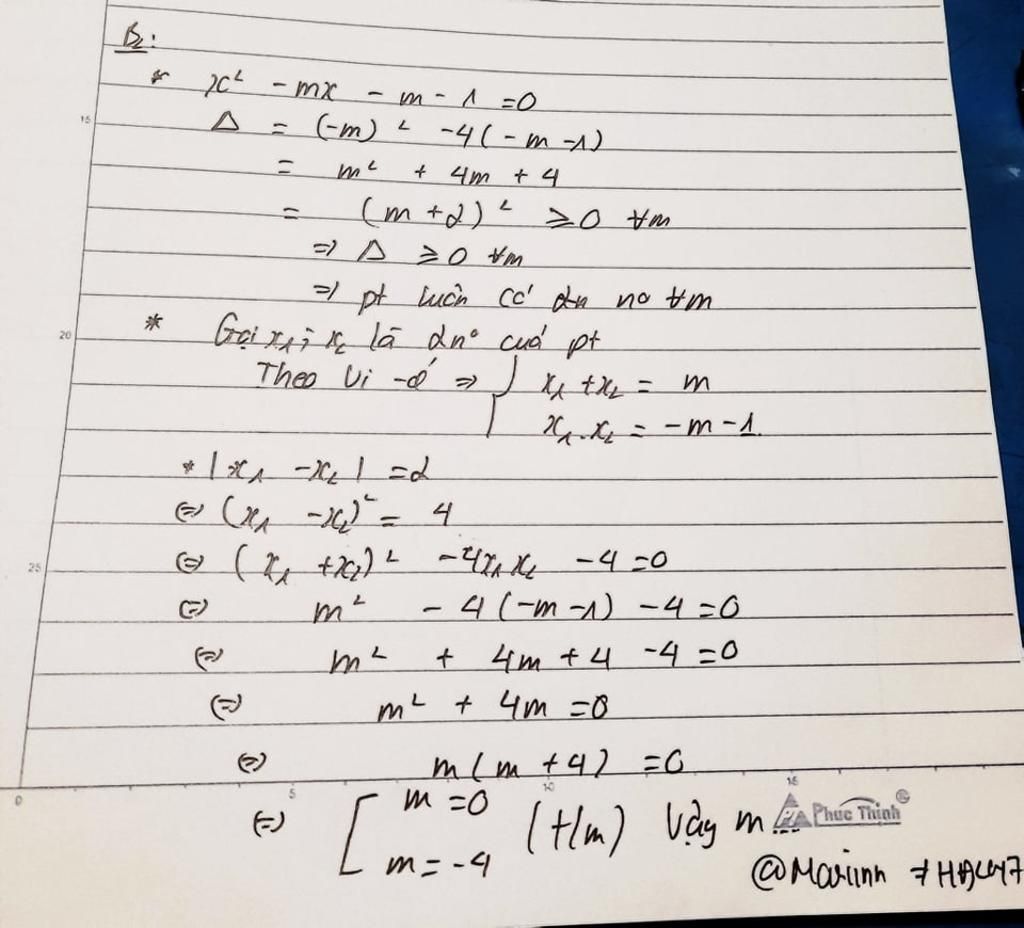 B2:
* x² - mx - m - 1 = 0
Δ = (-m)² - 4(-m - 1)
= m² + 4m + 4
= (m + 2)² ≥ 0 ∀m
=> Δ ≥ 0 ∀m
=> pt luôn có 2n no ∀m
* Gọi x₁; x₂ là 2n° của pt
Theo Vi-ét => { x₁ + x₂ = m
x₁.x₂ = -m - 1
* |x₁ - x₂| = 2
(=) (x₁ - x₂)² = 4
(=) (x₁ + x₂)² - 4x₁x₂ - 4 = 0
(=) m² - 4(-m - 1) - 4 = 0
(=) m² + 4m + 4 - 4 = 0
(=) m² + 4m = 0
(=) m(m + 4) = 0
(=) [ m = 0
m = -4 (t/m) Vậy m ...
Phuc Thinh
@Mariinn
15
20
25
0 5 10 15